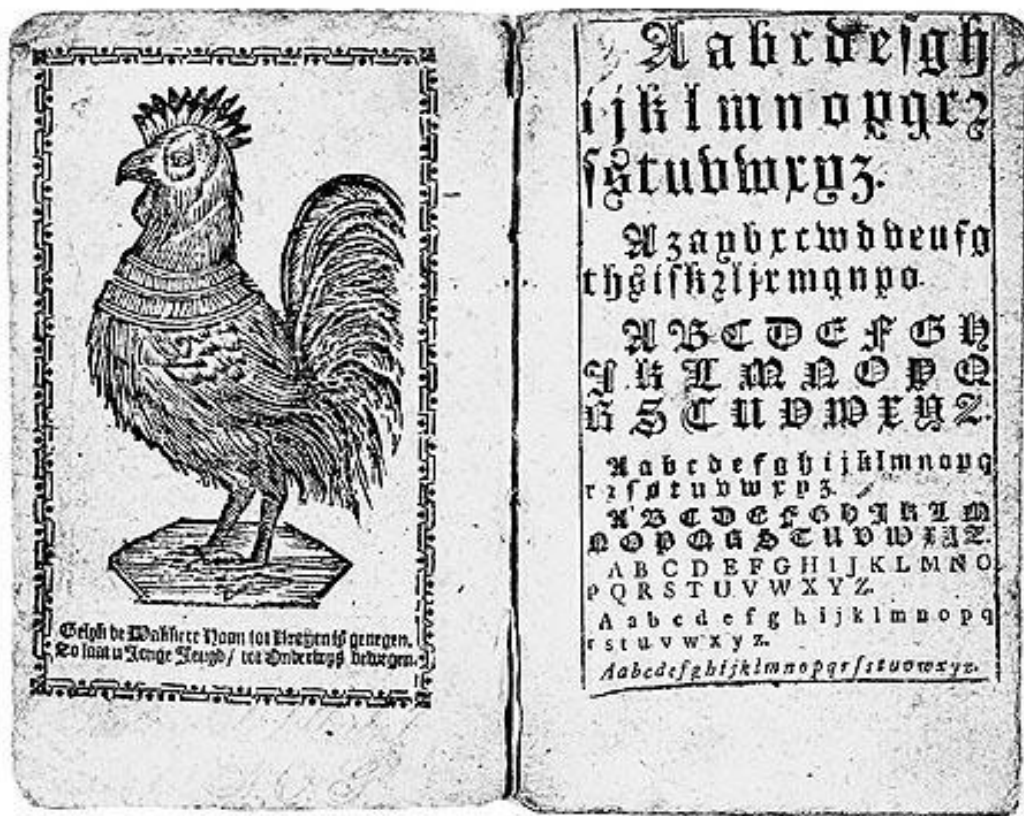 Gelyk de Wakkere Haan tot Kraeyen is genegen.
So laat u Jonge Jeugd / tot Onderwys bewegen.
A a b c d e f g h
i j k l m n o p q r ꝛ
ſ s t u v w x y z.
A z a y b x c w d v e u f g
t h s i ſ k ꝛ l j r m q n p o.
A B C D E F G H
I K L M N O P Q
R S T U V W X Y Z.
A a b c d e f g h i j k l m n o p q
r ꝛ ſ s t u v w x y z.
A B C D E F G H I K L M
N O P Q R S T U V W X Y Z.
A B C D E F G H I J K L M N O
P Q R S T U V W X Y Z.
A a b c d e f g h i j k l m n o p q
r s t u v w x y z.
A a b c d e f g h i j k l m n o p q r ſ s t u v w x y z.